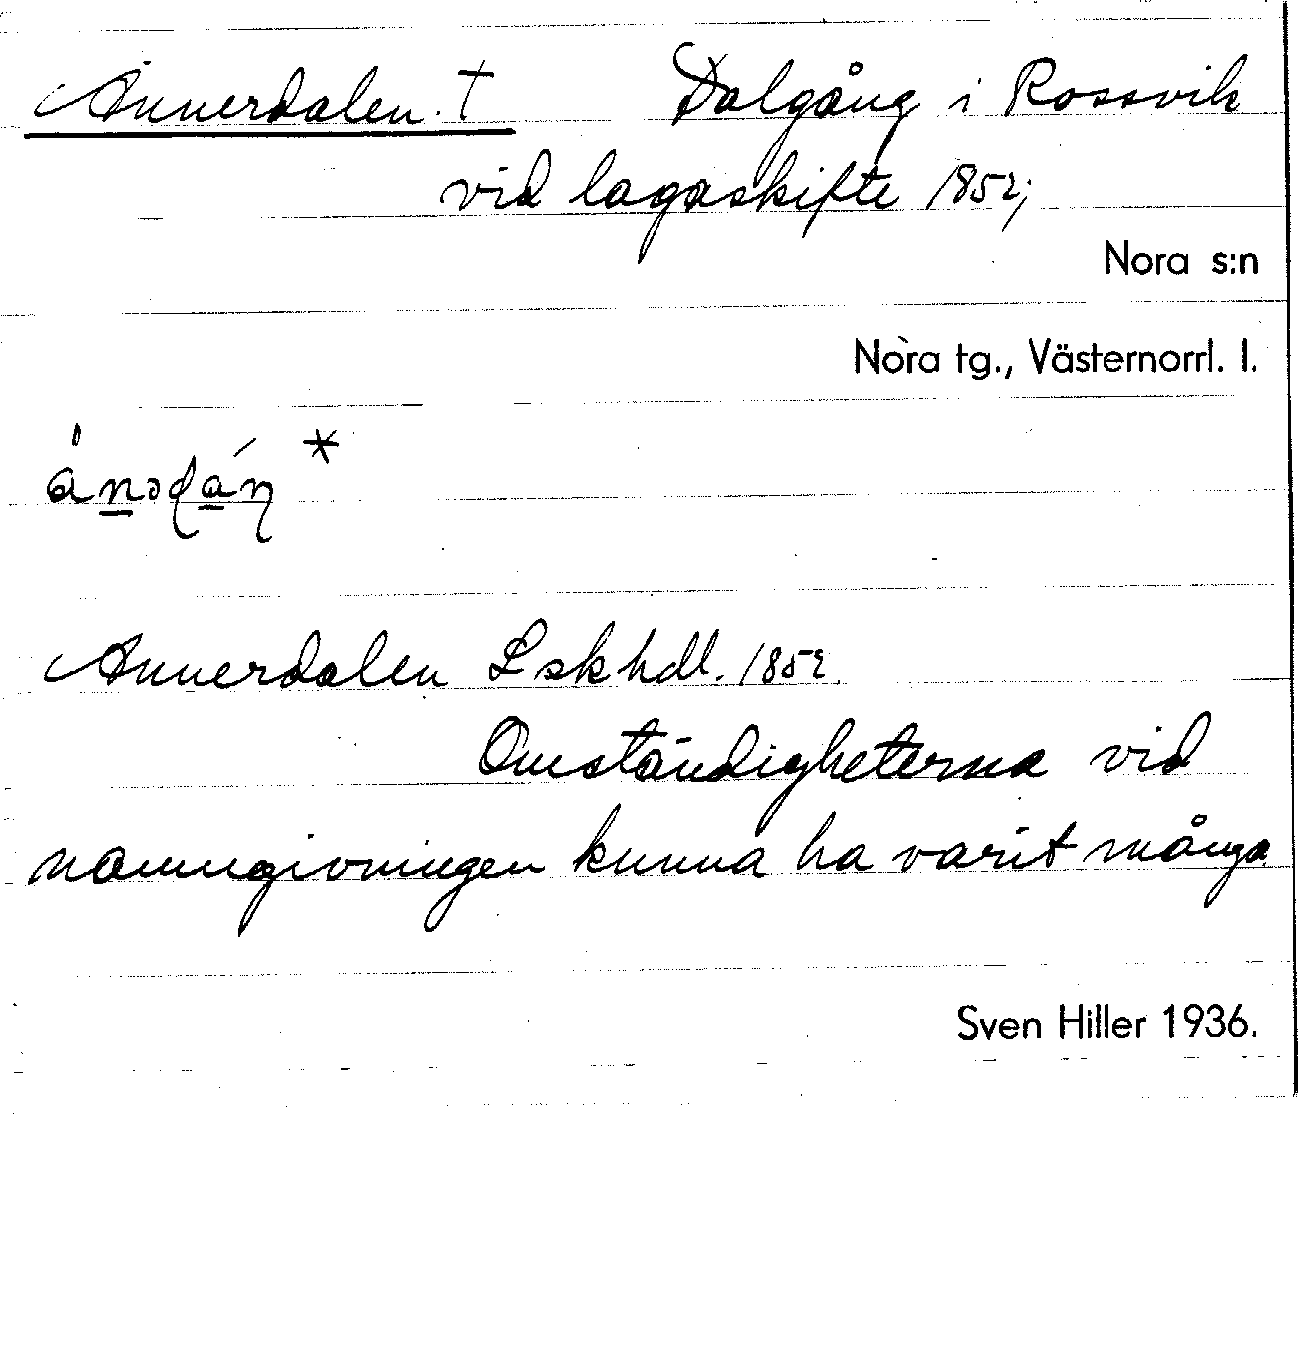 Annerdalen. † Dalgång i Rossvik
vid lagaskifte 1852;
Nora s:n
Nora tg., Västernorrl. l.
Annerdalen Lskhdl. 1852.
Omständigheterna vid
namngivningen kunna ha varit många
Sven Hiller 1936.